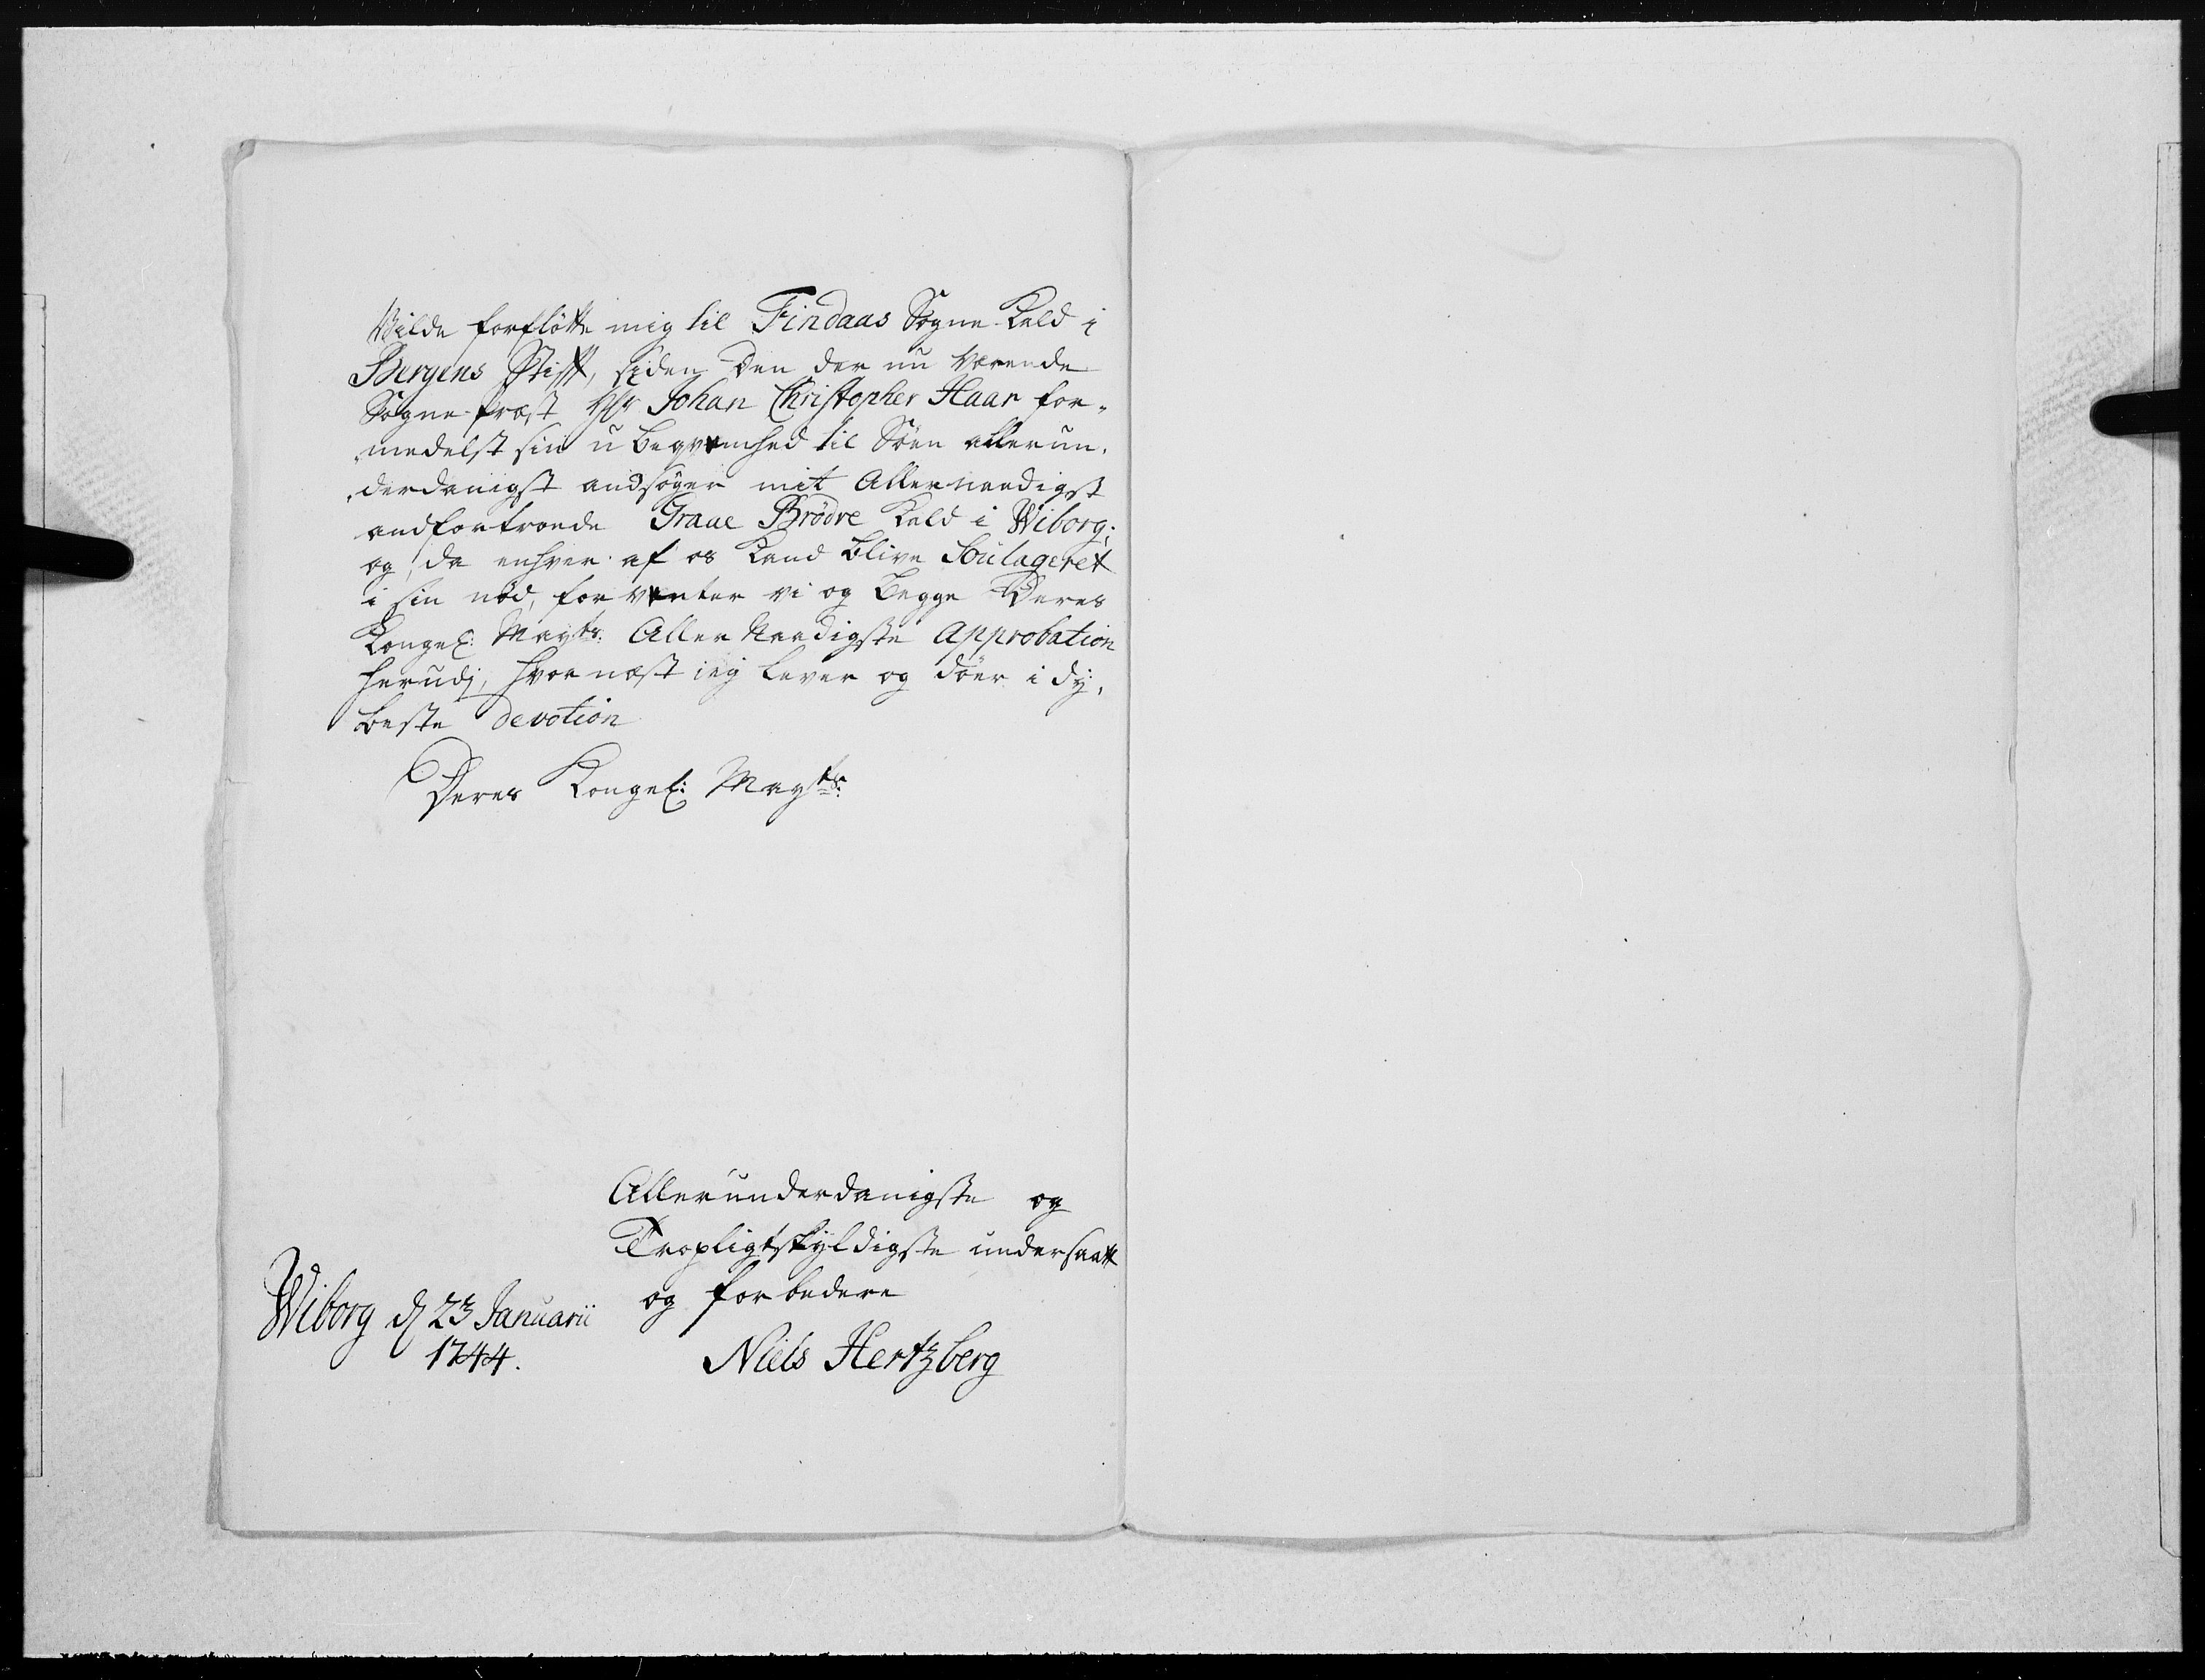 Vilde forflötte mig til Findaas Sogne-Kald i
Bergens Stift, siden den der nu værende
Sogne-Præst Hr Johan Christopher Haar for-
medelst sin u begvemhed til Söen allerun-
derdanigst andsöger mit Allernaadigst
andfortroede Graae Brödre Kald i Wiborg;
og, da enhver af os kand blive Soulageret
i sin nöd, for venter vi og begge Deres
Kongel: Mayts: Aller Naadigste Approbation
herudj, hvor næst ieg lever og döer i dy-
beste devotion
Deres Kongel: Mayts:
Allerunderdanigste og
Tropligtskyldigste undersaatt
og forbedere
Wiborg d 23 Januarii
1744.
Niels Hertzberg